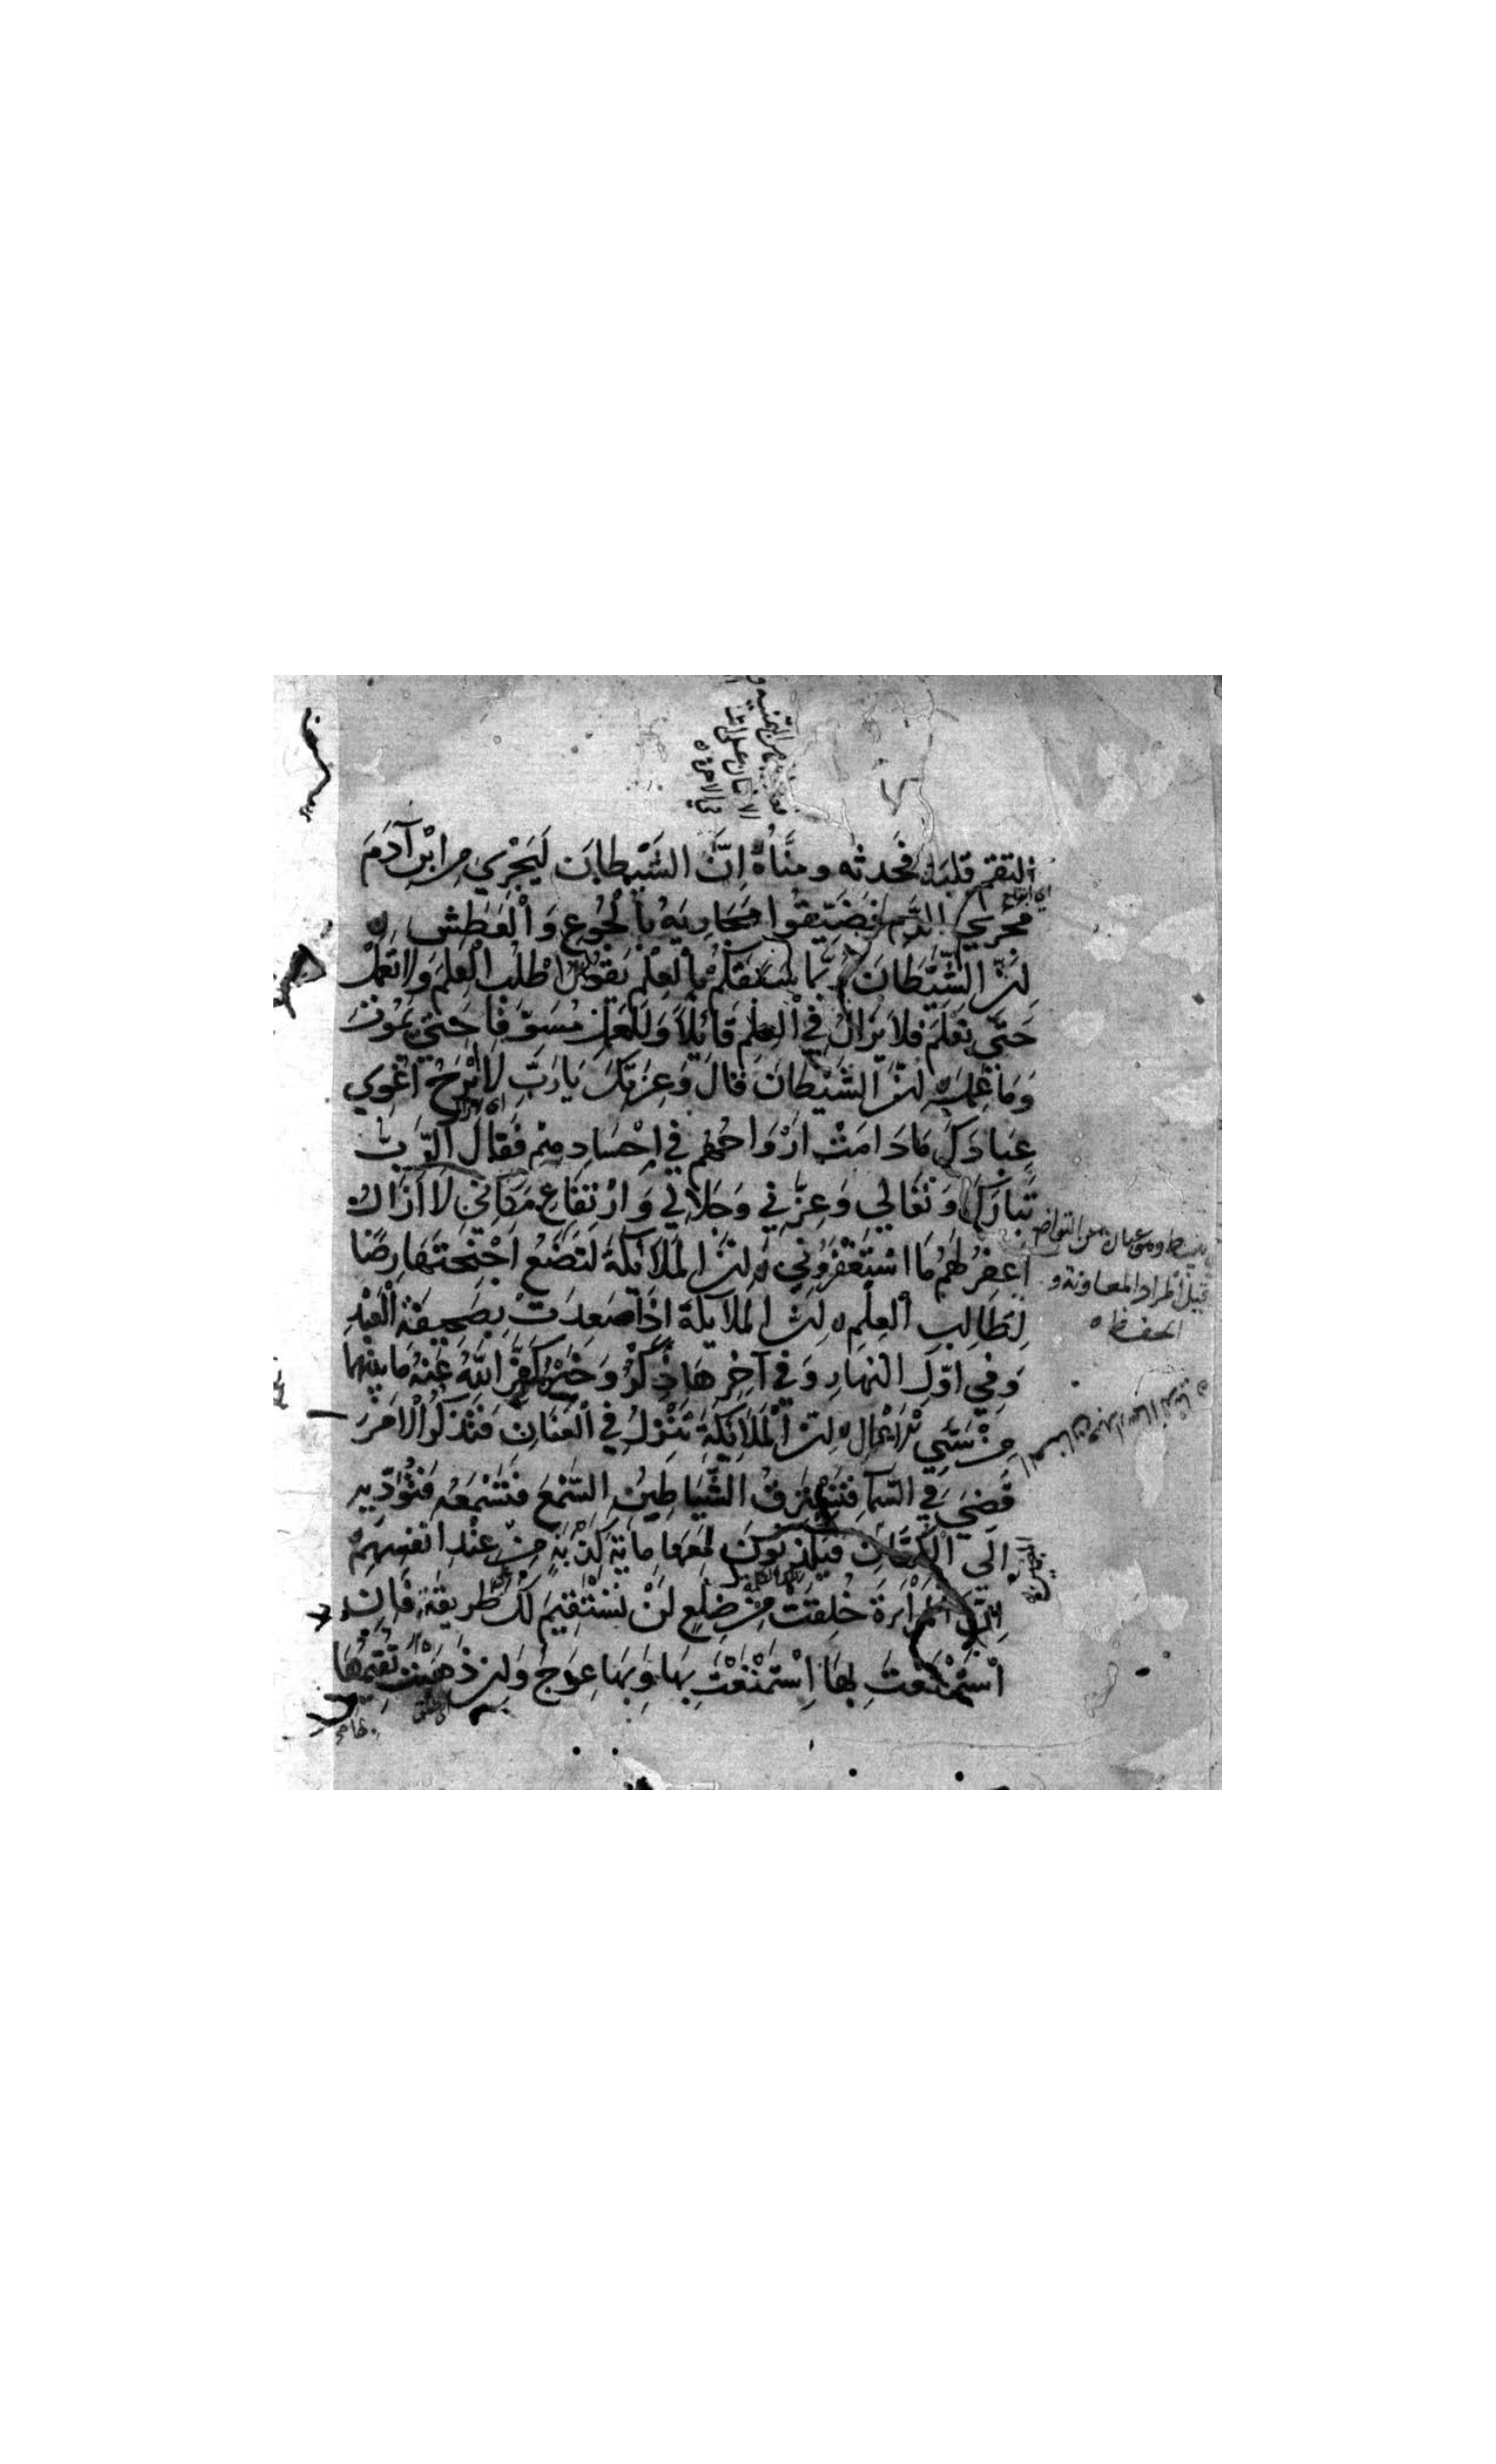 التقم قلبه فحدثه ومنَّاهُ اِنَّ الشَّيْطَانَ لَيَجْرِي مِن ابْنِ آدَمَ
مَجْرَي الدَّمِ فَضَيِّقُوا مَجَارِيَهُ بِالْجُوعِ وَالْعَطَشِ
اِنَّ الشَّيْطَانَ رُبَّمَا سَبَقَكُمْ بِالْعِلْمِ يَقُولُ اطْلُبِ الْعِلْمَ وَلَا تَعْمَلْ
حَتَّي تَعْلَمَ فَلَا يَزَالُ فِي الْعِلْمِ قَائِلًا وَلِلْعَمَلِ مُسَوِّفًا حَتَّي يَمُوتَ
وَمَا عَمِلَ اِنَّ الشَّيْطَانَ قَالَ وَعِزَّتِكَ يَا رَبِّ لَا اَبْرَحُ اُغْوِي
عِبَادَكَ مَا دَامَتْ اَرْوَاحُهُمْ فِي اَجْسَادِهِمْ فَقَالَ الرَّبُّ
تَبَارَكَ وَتَعَالَي وَعِزَّتِي وَجَلَالِي وَارْتِفَاعِ مَكَانِي لَا اَزَالُ
اَغْفِرُ لَهُمْ مَا اسْتَغْفَرُونِي اِنَّ الْمَلَائِكَةَ لَتَضَعُ اَجْنِحَتَهَا رِضًا
لِطَالِبِ الْعِلْمِ اِنَّ الْمَلَائِكَةَ اِذَا صَعِدَتْ بِصَحِيفَةِ الْعَبْدِ
وَفِي اَوَّلِ النَّهَارِ وَفِي آخِرِهَا ذِكْرٌ وَخَيْرٌ كَفَّرَ اللَّهُ عَنْهُ مَا بَيْنَهُمَا
مِنْ سَيِّئِ الْاَعْمَالِ اِنَّ الْمَلَائِكَةَ تَنْزِلُ فِي الْعَنَانِ فَتَذْكُرُ الْاَمْرَ
قُضِيَ فِي السَّمَآءِ فَتَسْتَرِقُ الشَّيَاطِينُ السَّمْعَ فَتَسْمَعُهُ فَتُؤَدِّيهِ
اِلَي الْكُهَّانِ فَيَكْذِبُونَ مَعَهَا مِائَةَ كَذْبَةٍ مِنْ عِنْدِ اَنْفُسِهِمْ
اِنَّ الْمَرْاَةَ خُلِقَتْ مِنْ ضِلَعٍ لَنْ تَسْتَقِيمَ لَكَ طَرِيقَةً فَاِنِ
اسْتَمْتَعْتَ بِهَا اِسْتَمْتَعْتَ بِهَا وَبِهَا عِوَجٌ وَاِنْ ذَهَبْتَ تُقِيمُهَا
قيل المراد المعاونة و
الحفظ